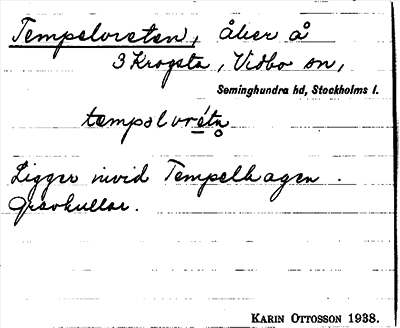 Tempelvreten, åker å
3 Krogsta, Vidbo sn,
Seminghundra hd, Stockholms l.
tempəlvré̱tn̥
Ligger invid Tempelhagen.
Gravkullar.
KARIN OTTOSSON 1938.